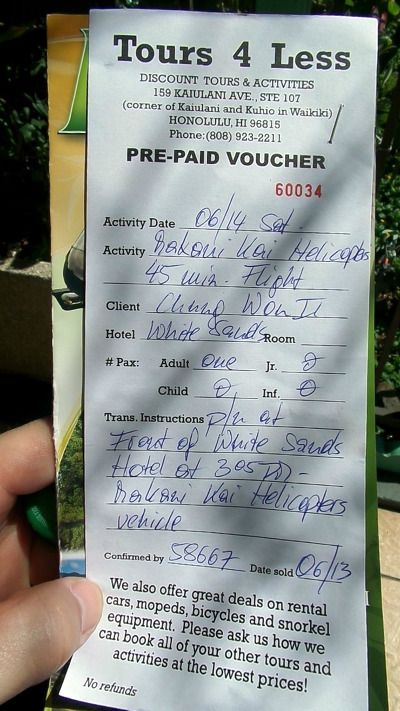 Tours 4 Less
DISCOUNT TOURS & ACTIVITIES
159 KAIULANI AVE., STE 107
(corner of Kaiulani and Kuhio in Waikiki)
HONOLULU, HI 96815
Phone:(808) 923-2211
PRE-PAID VOUCHER
60034
Activity Date 06/14 Sat.
Activity Makani Kai Helicopters
45 min. Flight
Client Chung Won Il
Hotel White Sands Room
# Pax: Adult one Jr. 0
Child 0 Inf. 0
Trans. Instructions p/u at
Front of White Sands
Hotel at 305 PM -
Makani Kai Helicopters
vehicle
Confirmed by 58667 Date sold 06/13
We also offer great deals on rental
cars, mopeds, bicycles and snorkel
equipment. Please ask us how we
can book all of your other tours and
activities at the lowest prices!
No refunds